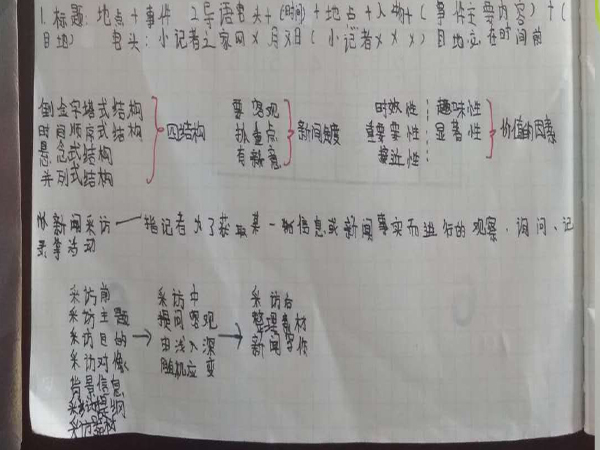 1.标题:地点+事件 2导语电头+(时间)+地点+人物+(事件主要内容)+(
目地) 电头:小记者之家网X月X日(小记者XXX)目地应在时间前
倒金字塔式结构
时间顺序式结构
悬念式结构
并列式结构
四结构
要客观
抓重点
有新意
新闻角度
时效性: 趣味性
重要性: 显著性
接近性:
价值的因素
新闻采访——指记者为了获取某一新信息或新闻事实而进行的观察、询问、记
录等活动
采访前
采访主题
采访目的
采访对像
背景信息
采访提纲
采访器材
采访中
提问客观
由浅入深
随机应变
采访后
整理素材
新闻写作